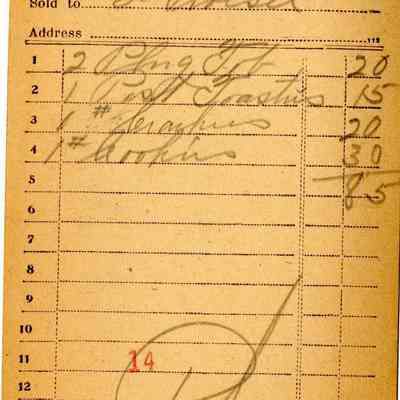 Sold to
Address
1 2 Plug Tob 20
2 1 Post Toasties 15
3 1 # 20
4 1 # Cookies 30
5 85
6
7
8
9
10
11 14
12